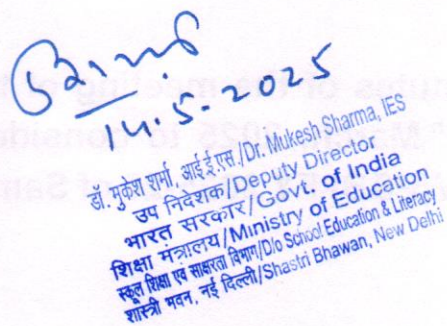 14.5.2025
डॉ. मुकेश शर्मा, आई.ई.एस./Dr. Mukesh Sharma, IES
उप निदेशक/Deputy Director
भारत सरकार/Govt. of India
शिक्षा मंत्रालय/Ministry of Education
स्कूल शिक्षा एवं साक्षरता विभाग/D/o School Education & Literacy
शास्त्री भवन, नई दिल्ली/Shastri Bhawan, New Delhi